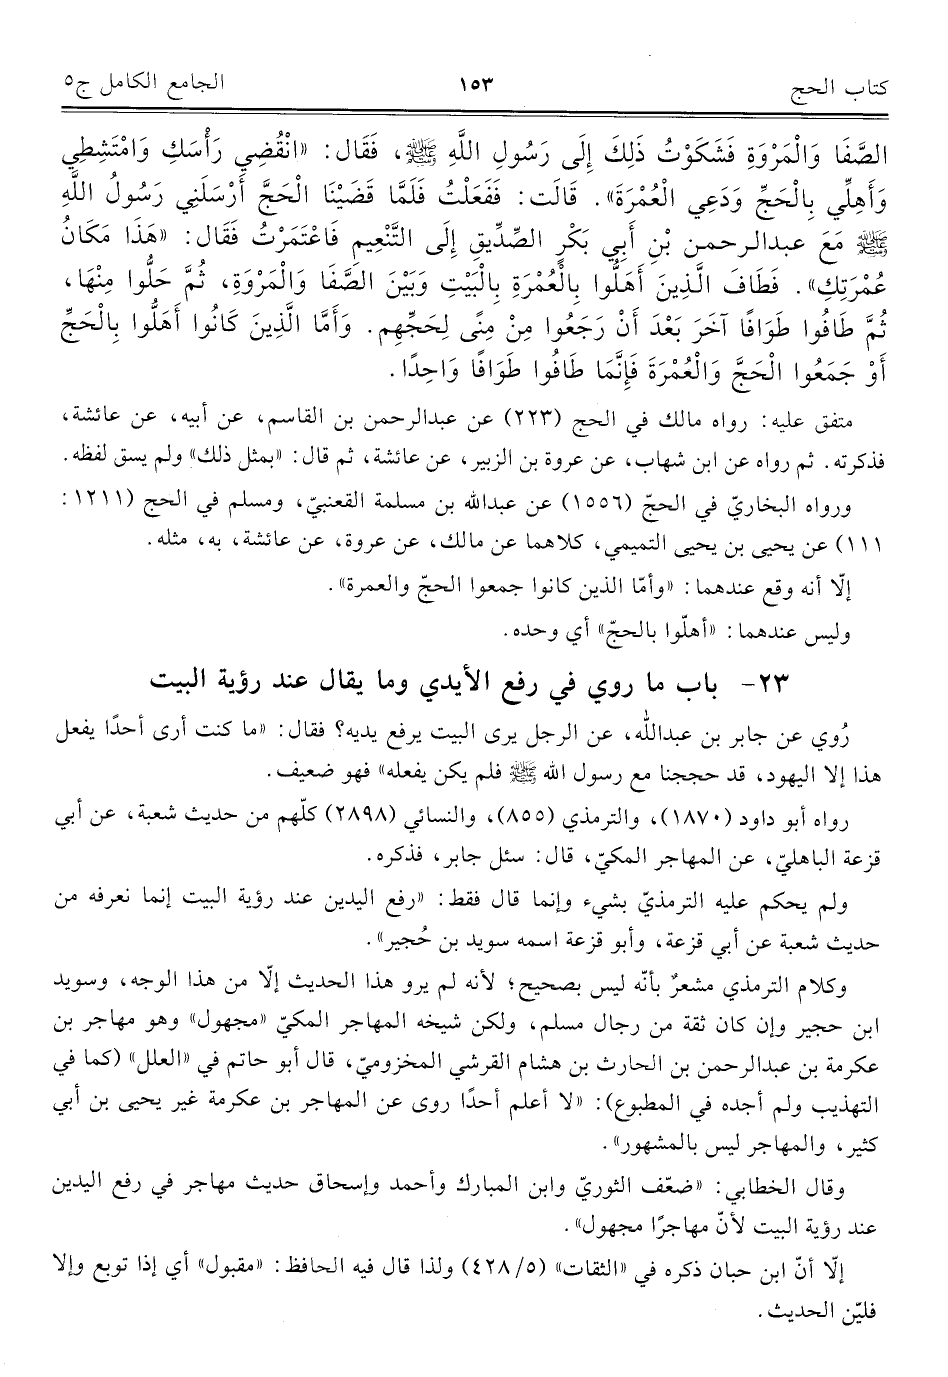 كتاب الحج ١٥٣ الجامع الكامل ج٥
الصَّفَا وَالْمَرْوَةِ فَشَكَوْتُ ذَلِكَ إِلَى رَسُولِ اللَّهِ ﷺ، فَقَالَ: «انْقُضِي رَأْسَكِ وَامْتَشِطِي
وَأَهِلِّي بِالْحَجِّ وَدَعِي الْعُمْرَةَ». قَالَت: فَفَعَلْتُ فَلَمَّا قَضَيْنَا الْحَجَّ أَرْسَلَنِي رَسُولُ اللَّهِ
ﷺ مَعَ عبدالرحمن بْنِ أَبِي بَكْرٍ الصِّدِّيقِ إِلَى التَّنْعِيمِ فَاعْتَمَرْتُ فَقَالَ: «هَذَا مَكَانُ
عُمْرَتِكِ». فَطَافَ الَّذِينَ أَهَلُّوا بِالْعُمْرَةِ بِالْبَيْتِ وَبَيْنَ الصَّفَا وَالْمَرْوَةِ، ثُمَّ حَلُّوا مِنْهَا،
ثُمَّ طَافُوا طَوَافًا آخَرَ بَعْدَ أَنْ رَجَعُوا مِنْ مِنًى لِحَجِّهِم. وَأَمَّا الَّذِينَ كَانُوا أَهَلُّوا بِالْحَجِّ
أَوْ جَمَعُوا الْحَجَّ وَالْعُمْرَةَ فَإِنَّمَا طَافُوا طَوَافًا وَاحِدًا.
متفق عليه: رواه مالك في الحج (٢٢٣) عن عبدالرحمن بن القاسم، عن أبيه، عن عائشة،
فذكرته. ثم رواه عن ابن شهاب، عن عروة بن الزبير، عن عائشة، ثم قال: «بمثل ذلك» ولم يسق لفظه.
ورواه البخاريّ في الحجّ (١٥٥٦) عن عبدالله بن مسلمة القعنبيّ، ومسلم في الحج (١٢١١:
١١١) عن يحيى بن يحيى التميمي، كلاهما عن مالك، عن عروة، عن عائشة، به، مثله.
إلّا أنه وقع عندهما: «وأمّا الذين كانوا جمعوا الحجّ والعمرة».
وليس عندهما: «أهلّوا بالحجّ» أي وحده.
٢٣- باب ما روي في رفع الأيدي وما يقال عند رؤية البيت
رُوي عن جابر بن عبدالله، عن الرجل يرى البيت يرفع يديه؟ فقال: «ما كنت أرى أحدًا يفعل
هذا إلا اليهود، قد حججنا مع رسول الله ﷺ فلم يكن يفعله» فهو ضعيف.
رواه أبو داود (١٨٧٠)، والترمذي (٨٥٥)، والنسائي (٢٨٩٨) كلّهم من حديث شعبة، عن أبي
قزعة الباهليّ، عن المهاجر المكيّ، قال: سئل جابر، فذكره.
ولم يحكم عليه الترمذيّ بشيء وإنما قال فقط: «رفع اليدين عند رؤية البيت إنما نعرفه من
حديث شعبة عن أبي قزعة، وأبو قزعة اسمه سويد بن حُجير».
وكلام الترمذي مشعرٌ بأنّه ليس بصحيح؛ لأنه لم يرو هذا الحديث إلّا من هذا الوجه، وسويد
ابن حجير وإن كان ثقة من رجال مسلم، ولكن شيخه المهاجر المكيّ «مجهول» وهو مهاجر بن
عكرمة بن عبدالرحمن بن الحارث بن هشام القرشي المخزوميّ، قال أبو حاتم في «العلل» (كما في
التهذيب ولم أجده في المطبوع): «لا أعلم أحدًا روى عن المهاجر بن عكرمة غير يحيى بن أبي
كثير، والمهاجر ليس بالمشهور».
وقال الخطابي: «ضعّف الثوريّ وابن المبارك وأحمد وإسحاق حديث مهاجر في رفع اليدين
عند رؤية البيت لأنّ مهاجرًا مجهول».
إلّا أنّ ابن حبان ذكره في «الثقات» (٥/ ٤٢٨) ولذا قال فيه الحافظ: «مقبول» أي إذا توبع وإلا
فليّن الحديث.